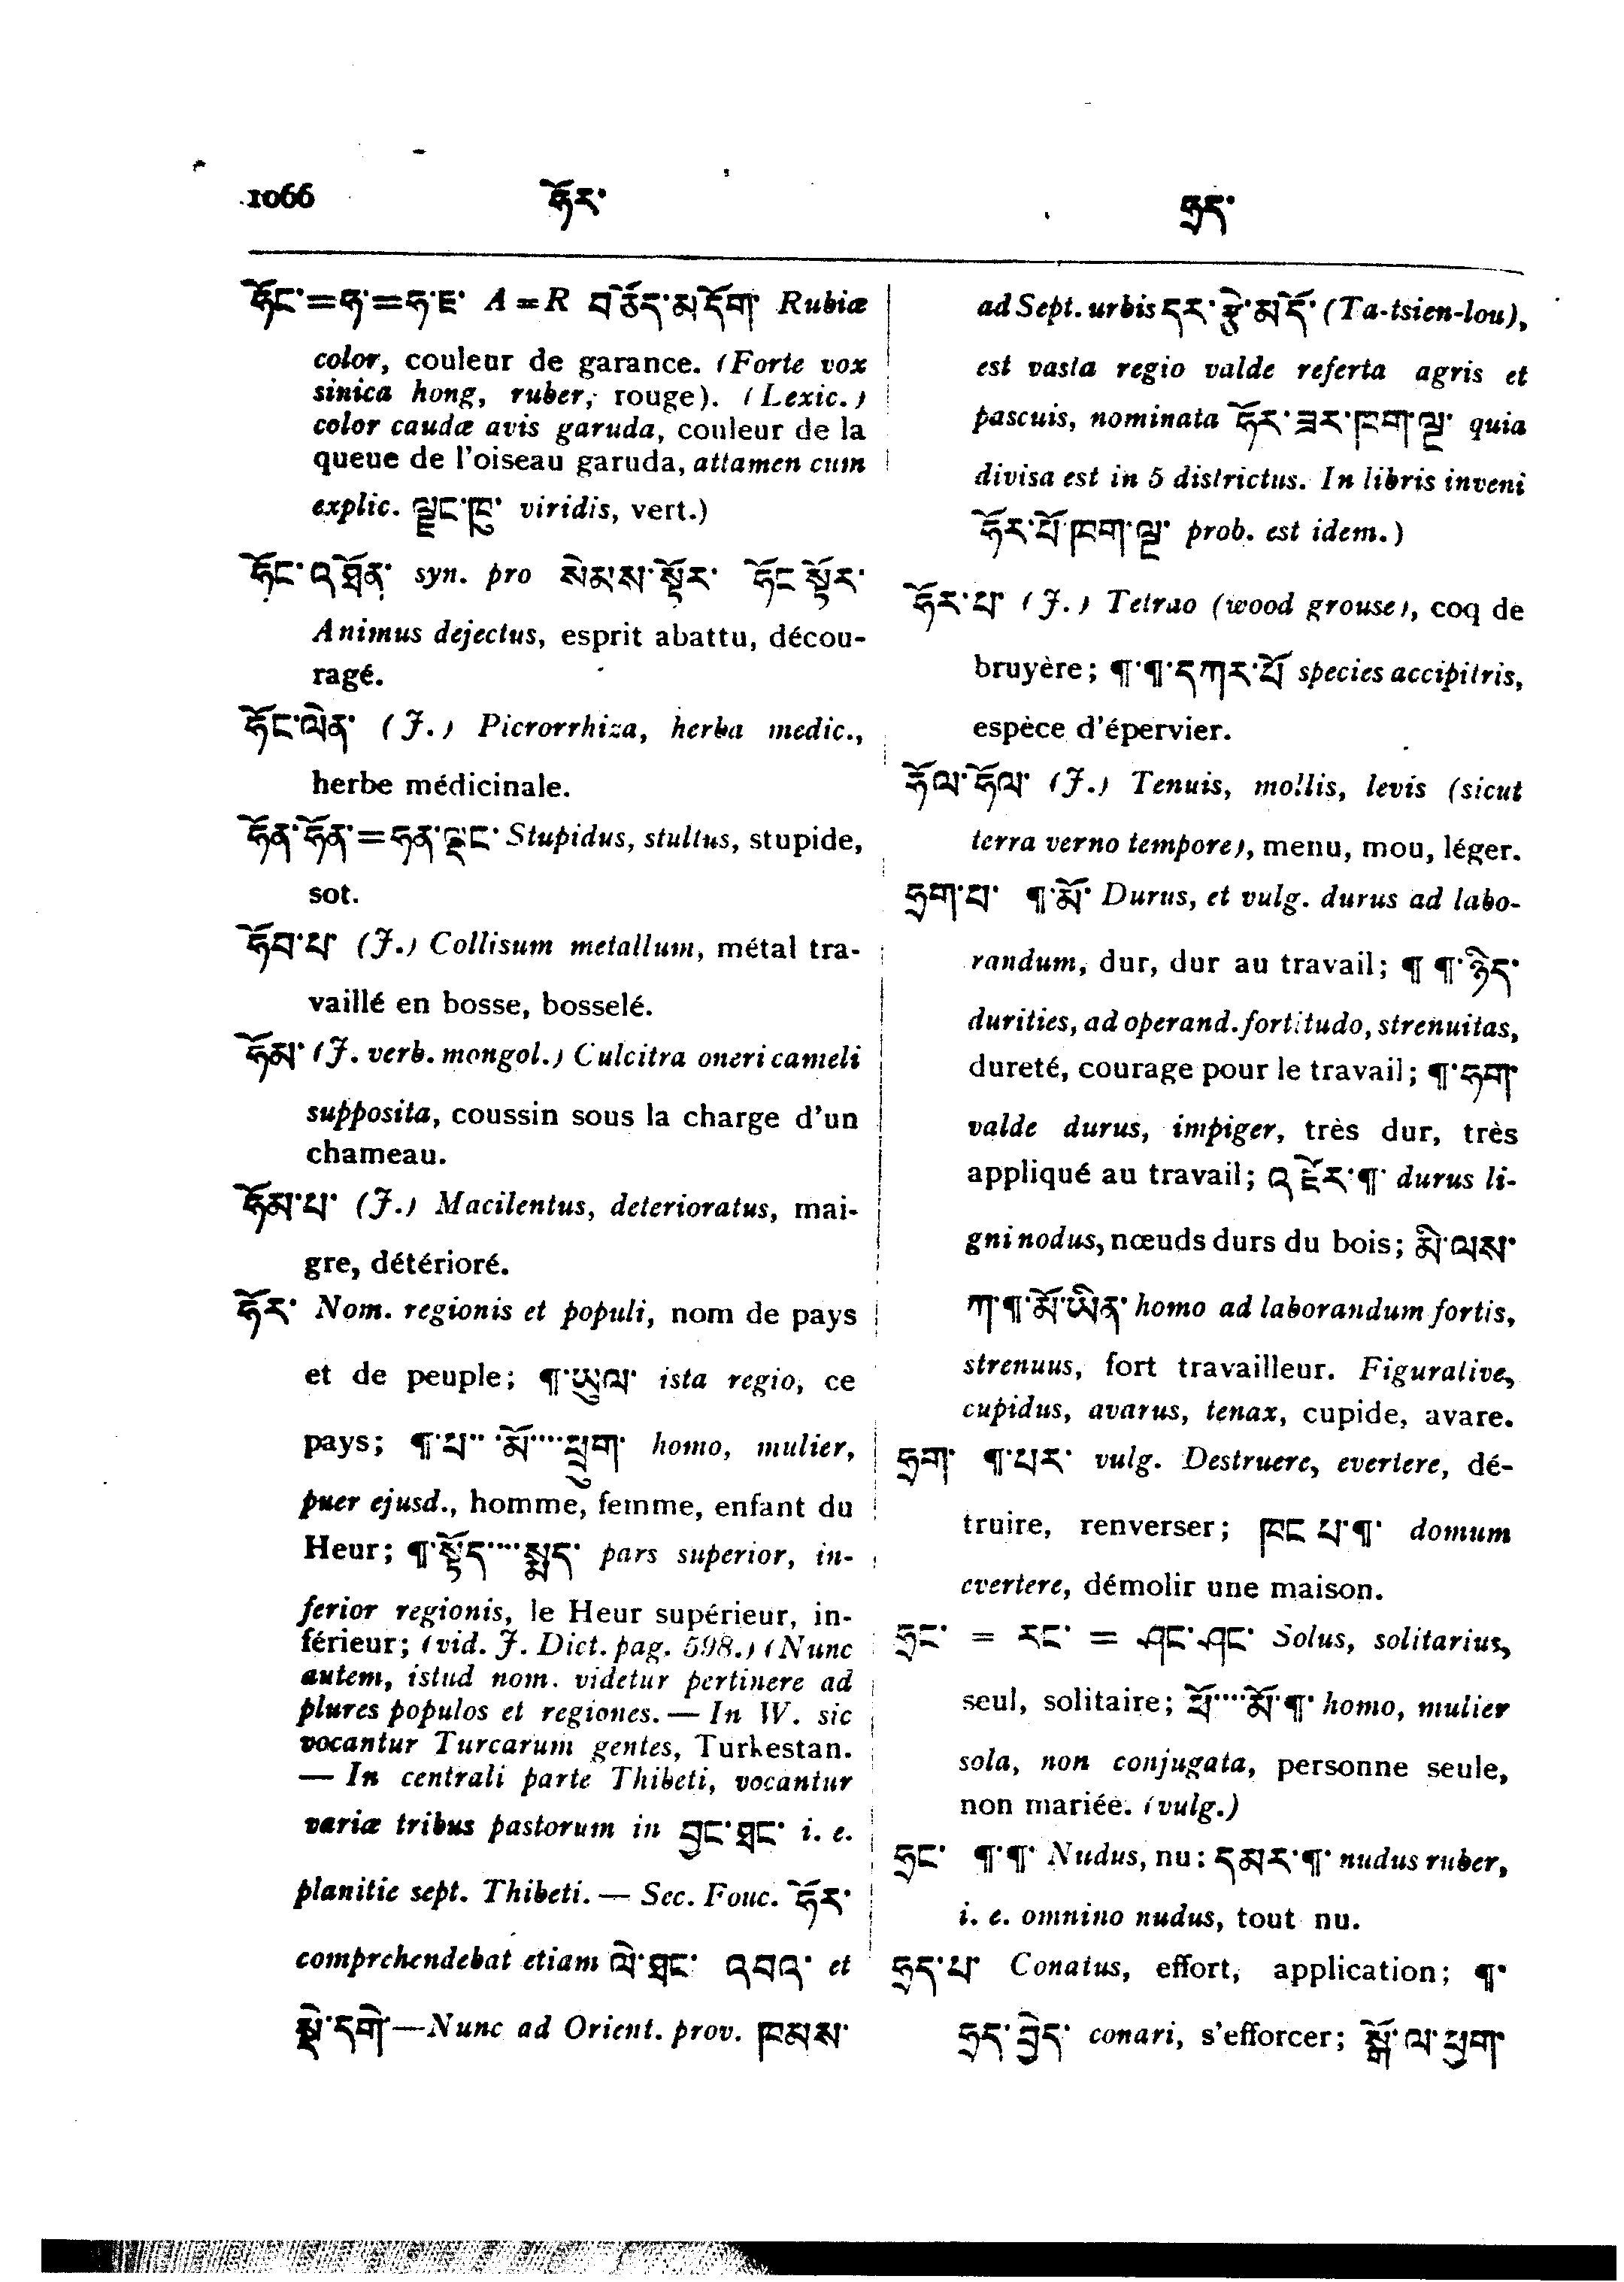 1066 ཧོར་ ཧྲད་
ཧོང་=ཧ་=ཧ་ཇ་ A=R བཙོད་མདོག་ Rubiæ
color, couleur de garance. (Forte vox
sinica hong, ruber, rouge). (Lexic.)
color caudæ avis garuda, couleur de la
queue de l'oiseau garuda, attamen cum
explic. ལྗང་ཁུ་ viridis, vert.)
ཧོང་འཐོན་ syn. pro སེམས་སྟོར་ ཧོང་སྟོར་
Animus dejectus, esprit abattu, décou-
ragé.
ཧོང་ལེན་ (J.) Picrorrhiza, herba medic.,
herbe médicinale.
ཧོན་ཧོན་=ཧན་ལྡང་ Stupidus, stultus, stupide,
sot.
ཧོབ་པ་ (J.) Collisum metallum, métal tra-
vaillé en bosse, bosselé.
ཧོམ་ (J. verb. mongol.) Culcitra oneri cameli
supposita, coussin sous la charge d'un
chameau.
ཧོམ་པ་ (J.) Macilentus, deterioratus, mai-
gre, détérioré.
ཧོར་ Nom. regionis et populi, nom de pays
et de peuple; ¶་ཡུལ་ ista regio, ce
pays; ¶་པ་··་མོ་···ཕྲུག་ homo, mulier,
puer ejusd., homme, femme, enfant du
Heur; ¶་སྟོད་···སྨད་ pars superior, in-
ferior regionis, le Heur supérieur, in-
férieur; (vid. J. Dict. pag. 598.) (Nunc
autem, istud nom. videtur pertinere ad
plures populos et regiones. — In W. sic
vocantur Turcarum gentes, Turkestan.
— In centrali parte Thibeti, vocantur
variæ tribus pastorum in བྱང་ཐང་ i. e.
planitie sept. Thibeti. — Sec. Fouc. ཧོར་
comprehendebat etiam ལེ་ཐང་ འབའ་ et
སྡེ་དགེ་—Nunc ad Orient. prov. ཁམས་
ad Sept. urbis དར་རྩེ་མདོ་ (Ta-tsien-lou),
est vasta regio valde referta agris et
pascuis, nominata ཧོར་ཟར་ཁག་ལྔ་ quia
divisa est in 5 districtus. In libris inveni
ཧོར་པོ་ཁག་ལྔ་ prob. est idem.)
ཧོར་པ་ (J.) Tetrao (wood grouse), coq de
bruyère; ¶་¶་དཀར་པོ species accipitris,
espèce d'épervier.
ཧོལ་ཧོལ་ (J.) Tenuis, mollis, levis (sicut
terra verno tempore), menu, mou, léger.
ཧྲག་པ་ ¶་མོ་ Durus, et vulg. durus ad labo-
randum, dur, dur au travail; ¶ ¶་ཉིད་
durities, ad operand. fortitudo, strenuitas,
dureté, courage pour le travail; ¶་ཧག་
valde durus, impiger, très dur, très
appliqué au travail; འཛོར་¶་ durus li-
gni nodus, nœuds durs du bois; མི་ལས་
ཀ་¶་མོ་ཡིན་ homo ad laborandum fortis,
strenuus, fort travailleur. Figurative,
cupidus, avarus, tenax, cupide, avare.
ཧྲག་ ¶་པར་ vulg. Destruere, evertere, dé-
truire, renverser; ཁང་པ་¶་ domum
evertere, démolir une maison.
ཧྲང་ = རང་ = ཤང་ཤང་ Solus, solitarius,
seul, solitaire; ཕོ་···མོ་¶་ homo, mulier
sola, non conjugata, personne seule,
non mariée. (vulg.)
ཧྲང་ ¶་¶་ Nudus, nu: དམར་¶་ nudus ruber,
i. e. omnino nudus, tout nu.
ཧྲད་པ་ Conatus, effort, application; ¶་
ཧྲད་བྱེད་ conari, s'efforcer; སྒོ་ལ་ཕྱག་